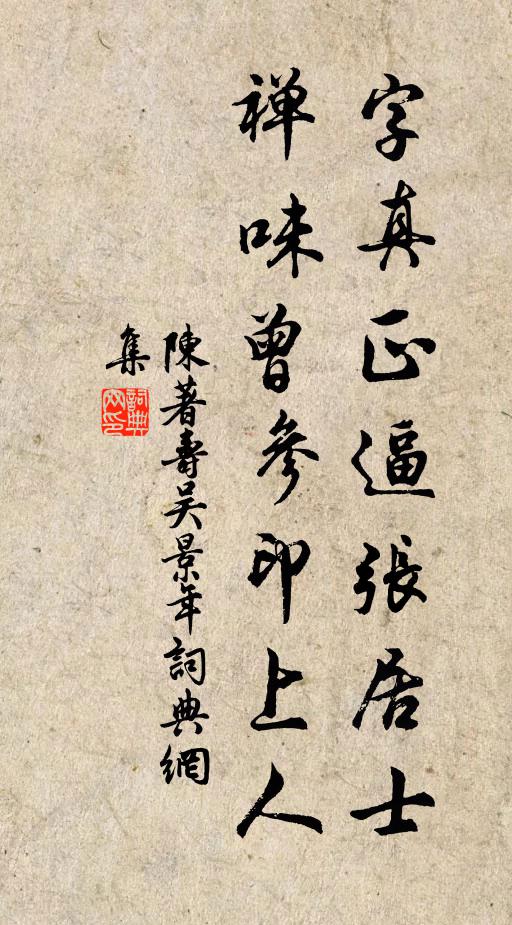 字真正逼張居士
禅味曾參印上人
陳著壽吴景年詞典網
集
詞典网印